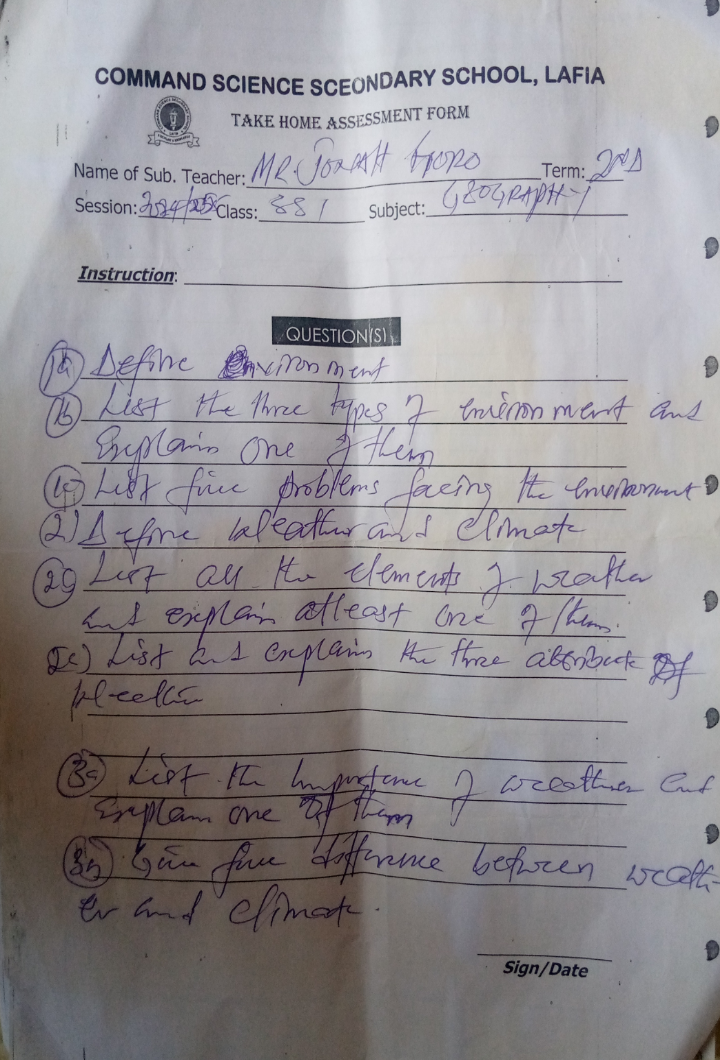 COMMAND SCIENCE SCEONDARY SCHOOL, LAFIA
TAKE HOME ASSESSMENT FORM
Name of Sub. Teacher: MR. Term: 2ND
Session: Class: SS 1 Subject: GEOGRAPHY
Instruction:
QUESTION(S)
1a) Define Environment
1b) List the three types of environment and
Explain one of them
1c) List five problems facing the environment
2) Define weather and climate
2b List all the elements of weather
and explain atleast one of them.
2c) List and explains the three attribute of
weather
3a List the Importance of weather and
Explain one of them
3b) Give five difference between weath-
er and climate.
Sign/Date